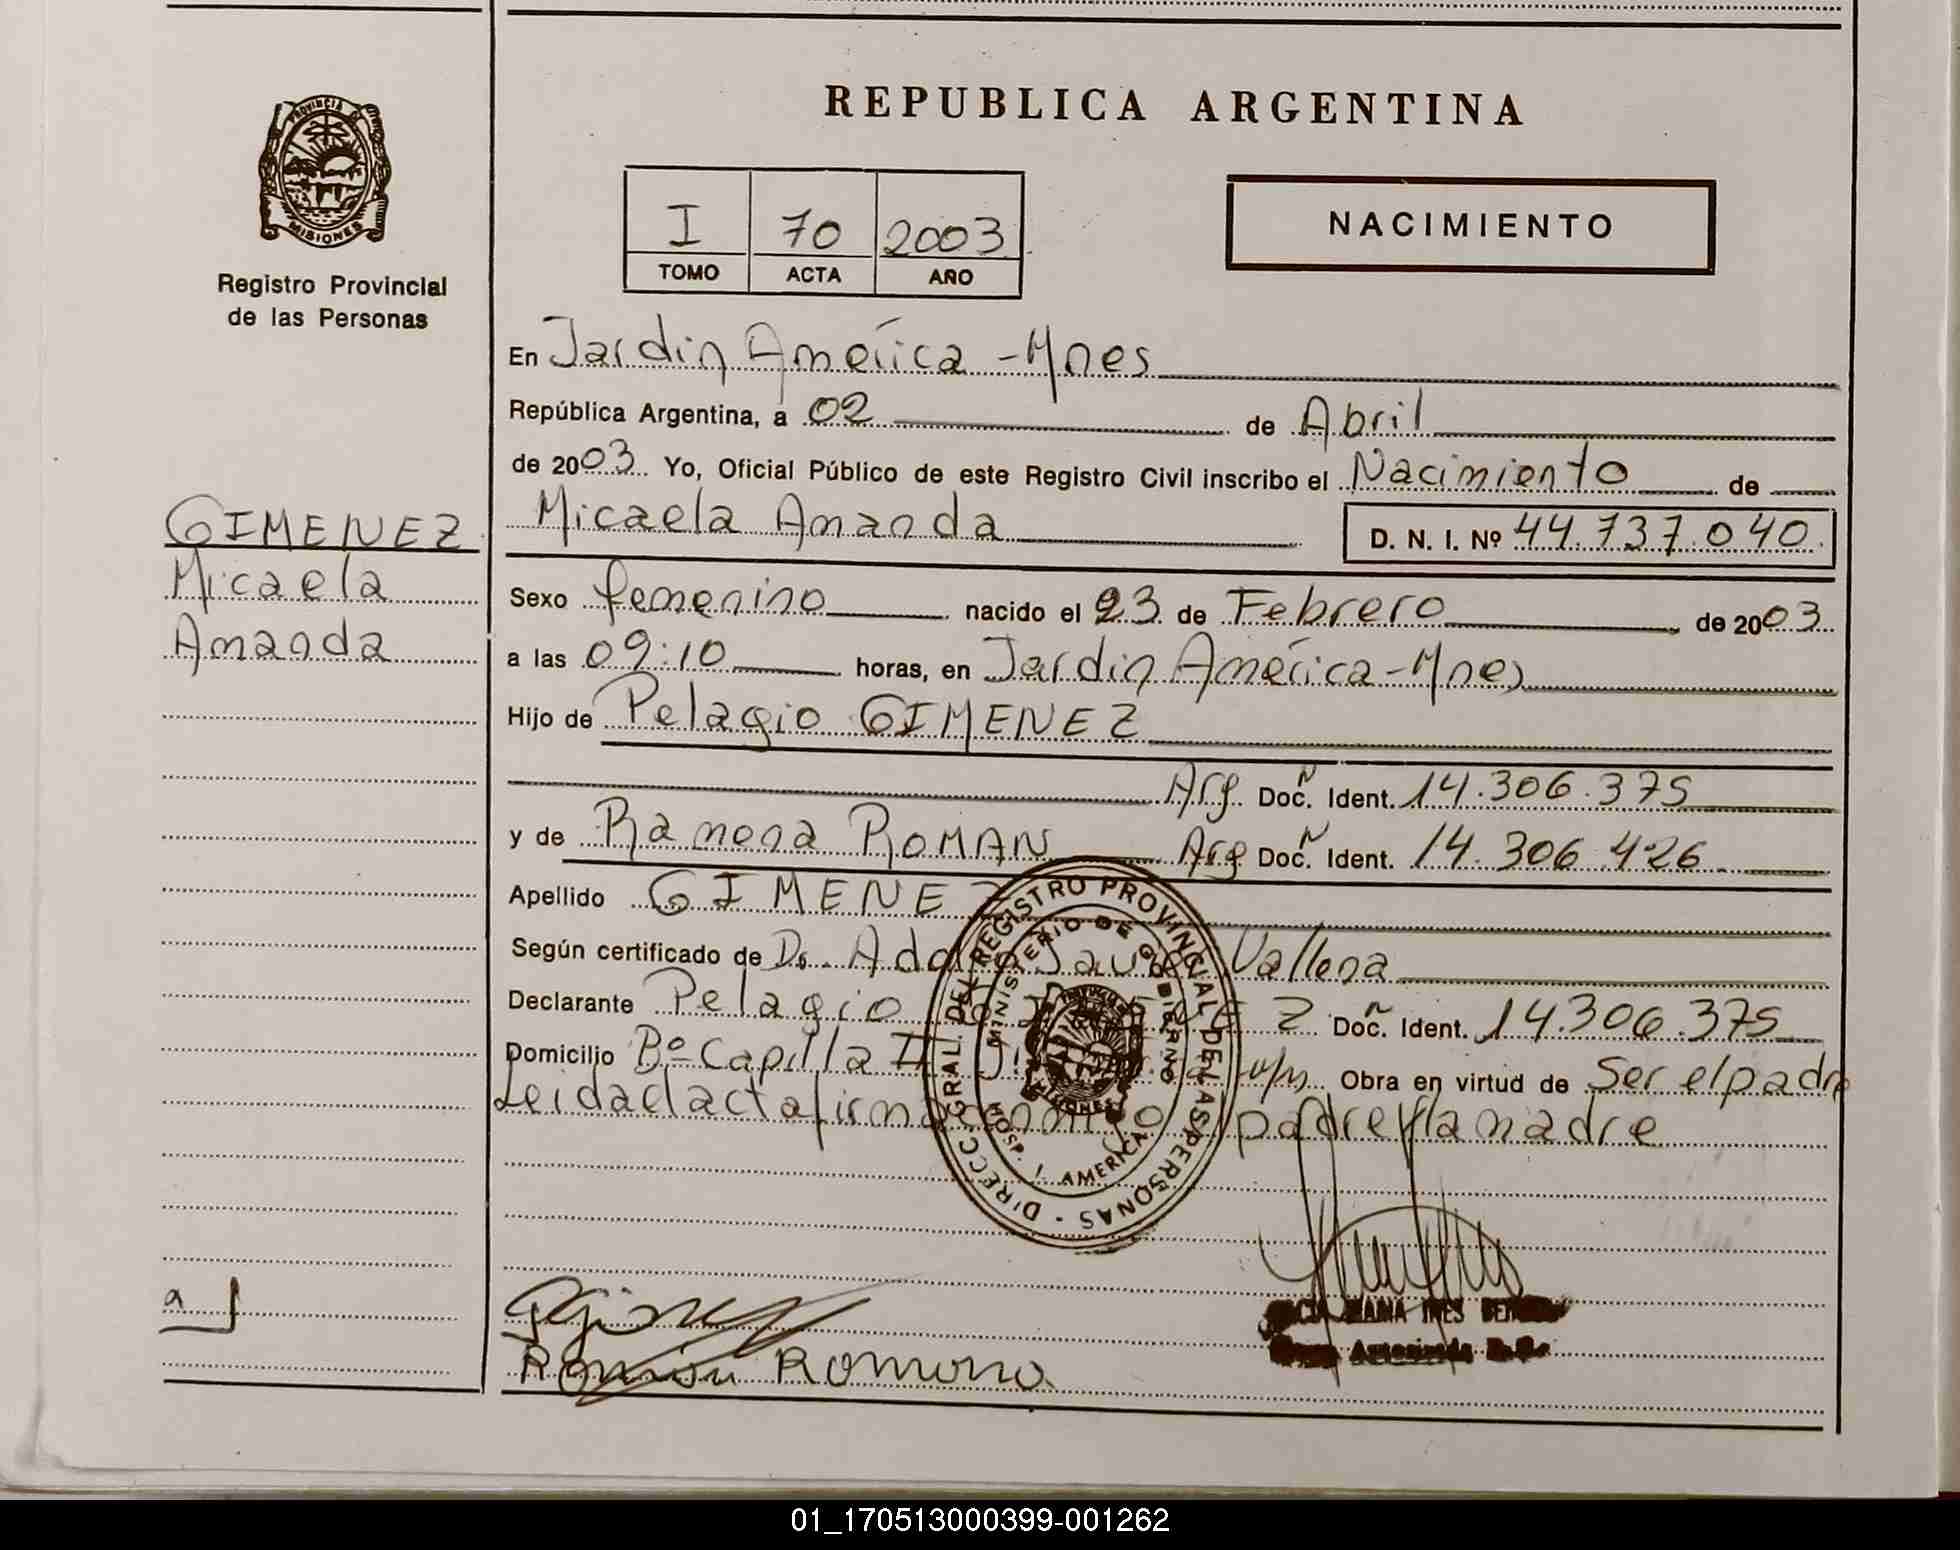 REPUBLICA ARGENTINA
PROVINCIA DE
MISIONES
Registro Provincial
de las Personas
I 70 2003
TOMO ACTA AÑO
NACIMIENTO
En Jardin América - Mnes
República Argentina, a 02 de Abril
de 2003 Yo, Oficial Público de este Registro Civil inscribo el Nacimiento de
GIMENEZ
Micaela
Amanda
Micaela Amanda D. N. I. Nº 44.737.040
Sexo femenino nacido el 23 de Febrero de 2003
a las 09:10 horas, en Jardin América - Mnes
Hijo de Pelagio GIMENEZ
Arg Doc. Ident. 14.306.375
y de Ramona ROMAN Arg Doc. Ident. 14.306.426
Apellido GIMENEZ
Según certificado de Dr. Vallena
Declarante Pelagio GIMENEZ Doc. Ident. 14.306.375
Domicilio Bº Capilla II Obra en virtud de Ser el padre
Leida el acta firma conmigo el padre y la madre
DIRECC. GRAL. DEL REGISTRO PROVINCIAL DE LAS PERSONAS
MINISTERIO DE GOBIERNO
HOSP. J. AMERICA
MARIA INES
Roman Romona
01_170513000399-001262